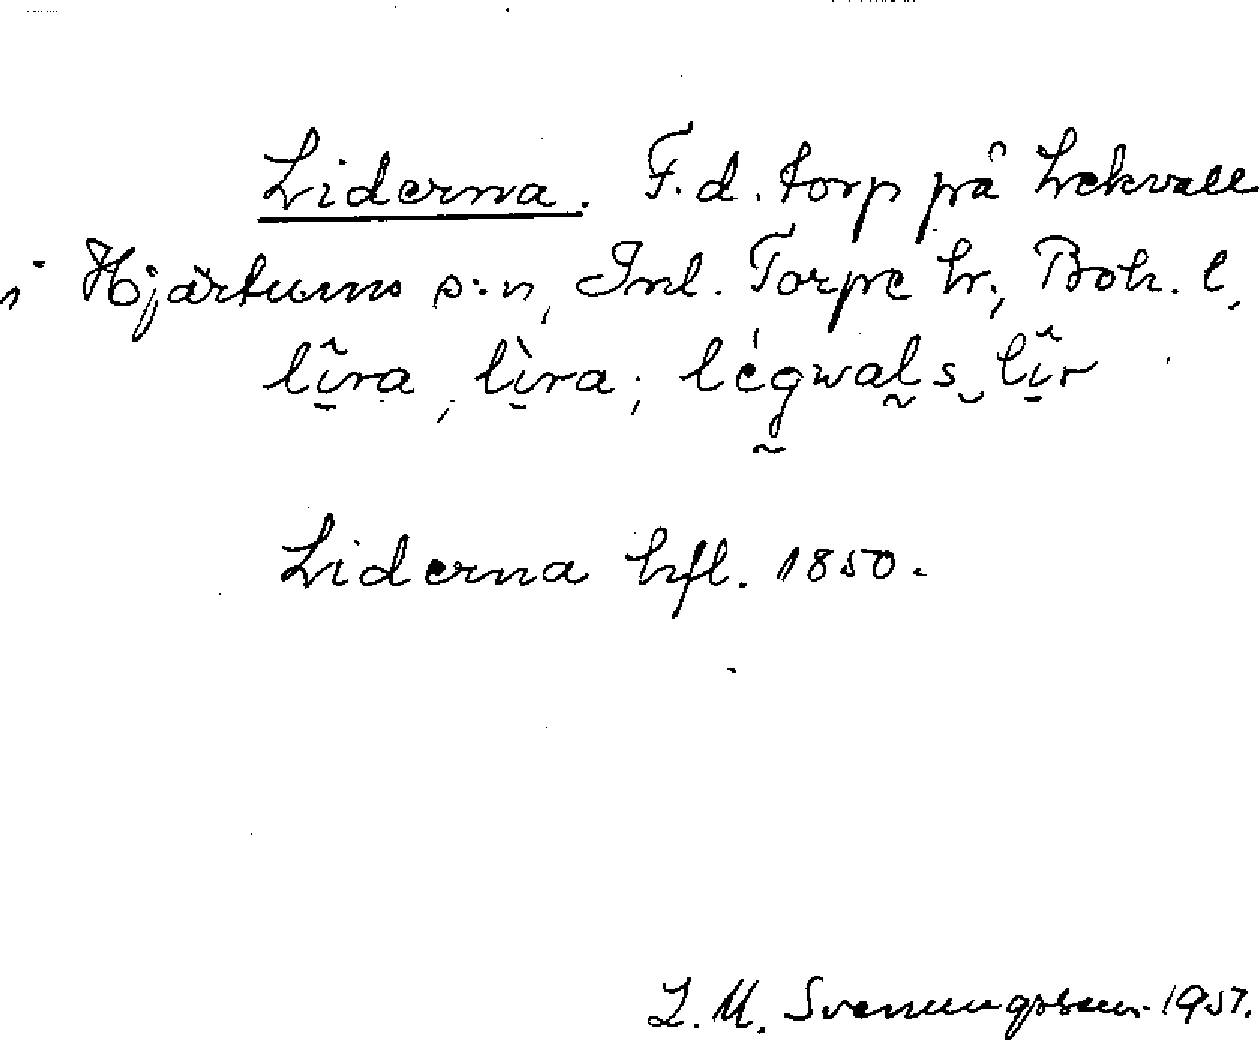 Liderna. F.d. torp på Lekvall
i Hjärtums s:n, Inl. Torpe hr., Boh. l.
lî̱ra, lì̱ra; légwal̰s‿lî̱r
Liderna hfl. 1850.
L. M. Svenungsson 1957.